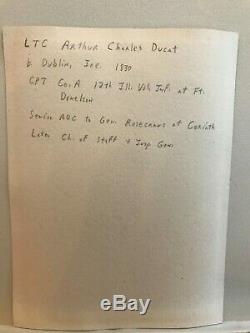 LTC Arthur Charles Ducat
b. Dublin, Ire. 1830
CPT Co. A 12th Ill. Vol. Inf. at Ft.
Donelson
Senior ADC to Gen. Rosecrans at Corinth
Later Ch. of Staff & Insp. Gen.
AuctionZero.com